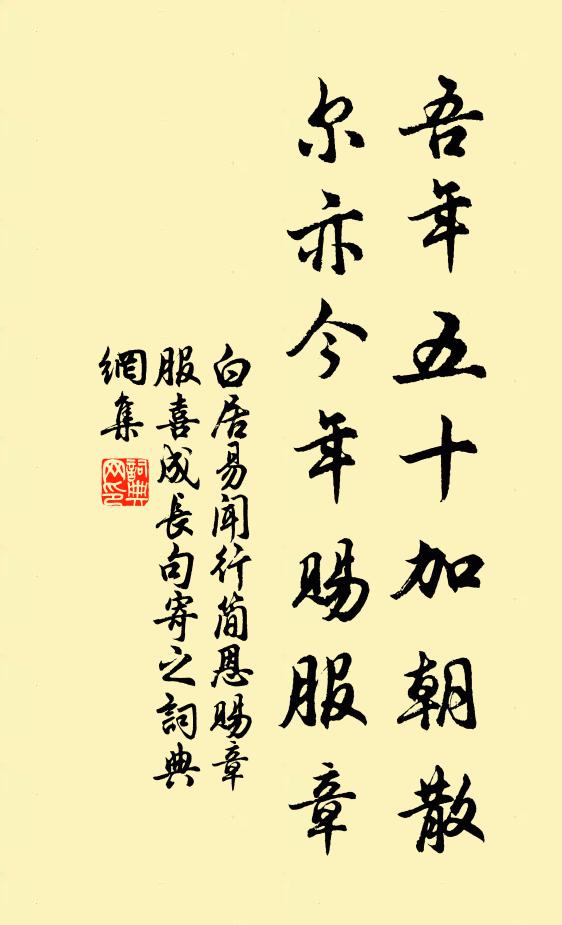 吾年五十加朝散
尔亦今年赐服章
白居易闻行简恩赐章
服喜成長句寄之詞典
網集
詞典
网印